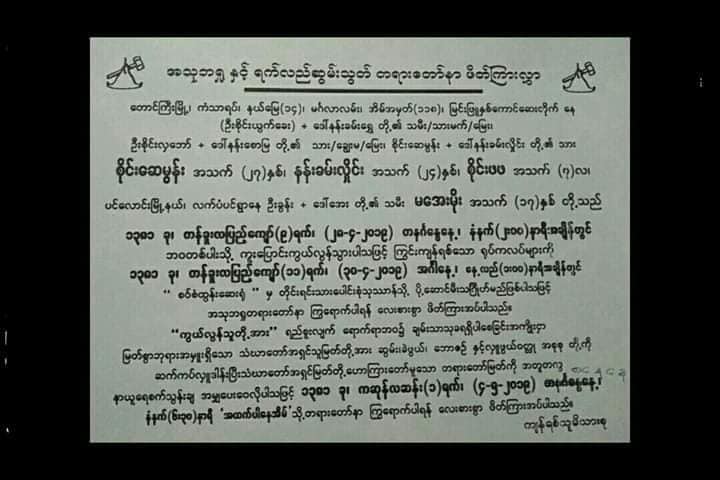 အသုဘရှု နှင့် ရက်လည်ဆွမ်းသွတ် တရားတော်နာ ဖိတ်ကြားလွှာ
တောင်ကြီးမြို့၊ ကံသာရပ်၊ နယ်မြေ(၁၄)၊ မင်္ဂလာလမ်း၊ အိမ်အမှတ်(၁၁၈)၊ မြင်းဖြူနှစ်ကောင်ဆေးတိုက် နေ
(ဦးစိုင်းယွက်ခေး) + ဒေါ်နန်းခမ်းရွှေ တို့၏ သမီး/သားမက်/မြေး၊
ဦးစိုင်းလှဘော် + ဒေါ်နန်းစောမြ တို့၏ သား/ချွေးမ/မြေး၊ စိုင်းဆေမွန်း + ဒေါ်နန်းခမ်းလှိုင်း တို့၏ သား
စိုင်းဆေမွန်း အသက် (၂၇)နှစ်၊ နန်းခမ်းလှိုင်း အသက် (၂၄)နှစ်၊ စိုင်းဖဖ အသက် (၇)လ၊
ပင်လောင်းမြို့နယ်၊ လက်ပံပင်ရွာနေ ဦးခွန်း + ဒေါ်အေး တို့၏ သမီး မအေးမိုး အသက် (၁၇)နှစ် တို့သည်
၁၃၈၁ ခု၊ တန်ခူးလပြည့်ကျော်(၉)ရက်၊ (၂၈-၄-၂၀၁၉) တနင်္ဂနွေနေ့၊ နံနက်(၂:၀၀)နာရီအချိန်တွင်
ဘဝတစ်ပါးသို့ ကူးပြောင်းကွယ်လွန်သွားပါသဖြင့် ကြွင်းကျန်ရစ်သော ရုပ်ကလပ်များကို
၁၃၈၁ ခု၊ တန်ခူးလပြည့်ကျော်(၁၁)ရက်၊ (၃၀-၄-၂၀၁၉) အင်္ဂါနေ့၊ နေ့လည်(၁:၀၀)နာရီအချိန်တွင်
“ စပ်စံထွန်းဆေးရုံ ” မှ တိုင်းရင်းသားပေါင်းစုံသုသာန်သို့ ပို့ဆောင်မီးသဂြိုဟ်မည်ဖြစ်ပါသဖြင့်
အသုဘရှုတရားတော်နာ ကြွရောက်ပါရန် လေးစားစွာ ဖိတ်ကြားအပ်ပါသည်။
“ကွယ်လွန်သူတို့အား” ရည်စူးလျက် ရောက်ရာဘဝ၌ ချမ်းသာသုခရရှိပါစေခြင်းအကျိုးငှာ
မြတ်စွာဘုရားအမှူးရှိသော သံဃာတော်အရှင်သူမြတ်တို့အား ဆွမ်း၊ခဲဖွယ်၊ ဘောဇဉ် နှင့်လှူဖွယ်ဝတ္ထု အစုစု တို့ကို
ဆက်ကပ်လှူဒါန်းပြီးသံဃာတော်အရှင်မြတ်တို့ဟောကြားတော်မူသော တရားတော်မြတ်ကို အတူတကွ
နာယူရေစက်သွန်းချ အမျှပေးဝေလိုပါသဖြင့် ၁၃၈၁ ခု၊ ကဆုန်လဆန်း(၁)ရက်၊ (၄-၅-၂၀၁၉) တနင်္ဂနွေနေ့၊
နံနက်(၆:၃၀)နာရီ ‘အထက်ပါနေအိမ်’သို့တရားတော်နာ ကြွရောက်ပါရန် လေးစားစွာ ဖိတ်ကြားအပ်ပါသည်။
ကျန်ရစ်သူမိသားစု